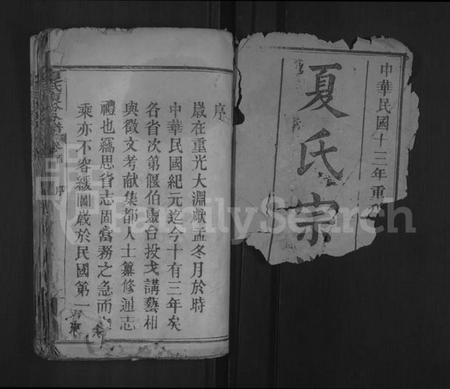 中華民國十三年重
夏氏宗
序
歲在重光大淵獻孟冬月於時
中華民國紀元迄今十有三年矣
各省次第偃伯靈台投戈講藝相
與徵文考獻集部人士纂修通志
禮也竊思省志固當務之急而
乘亦不容緩圖茲於民國第一
FamilySearch